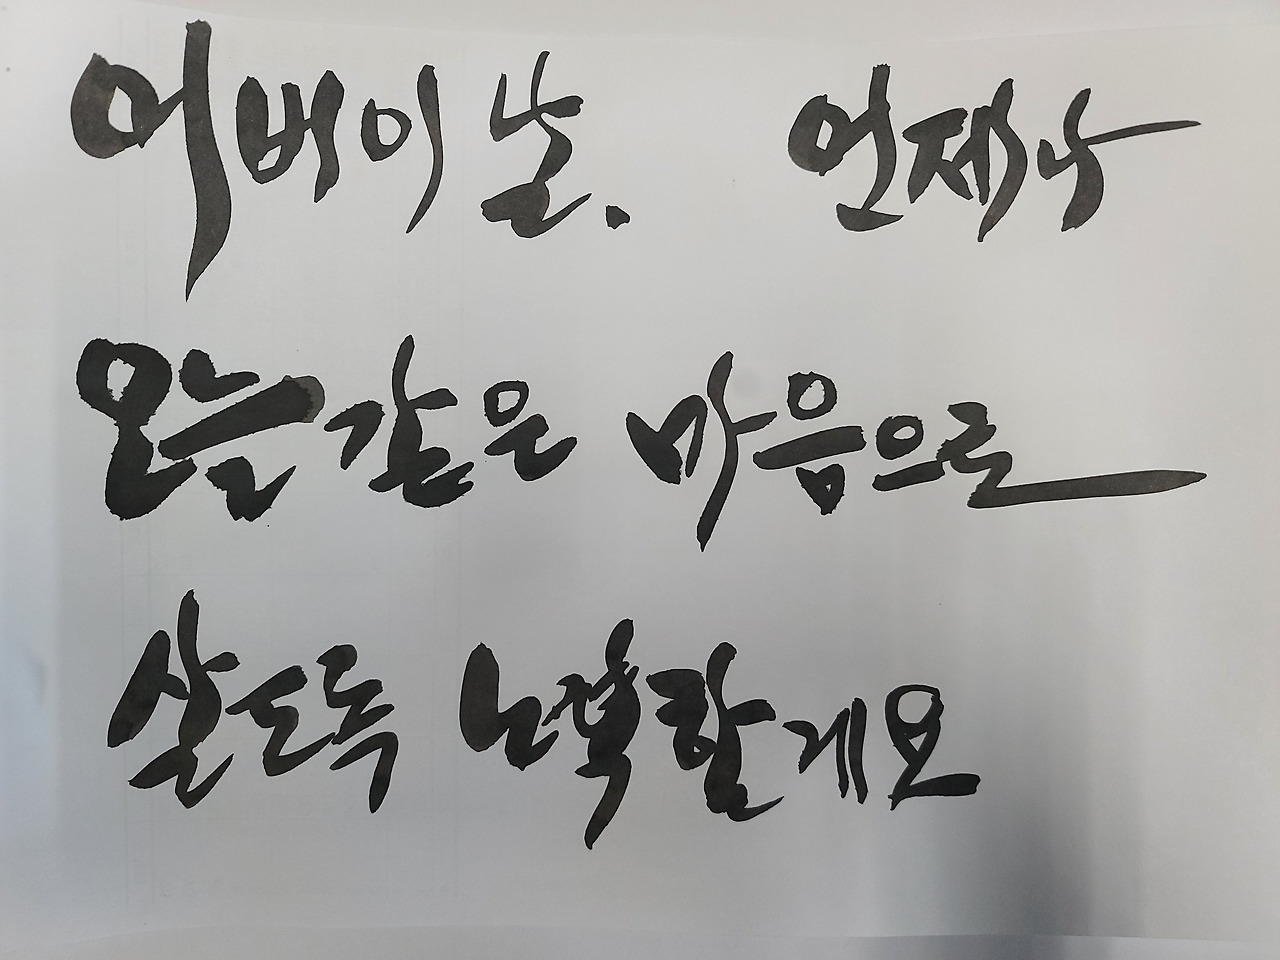 어버이날. 언제나
오늘같은 마음으로
살도록 노력할게요